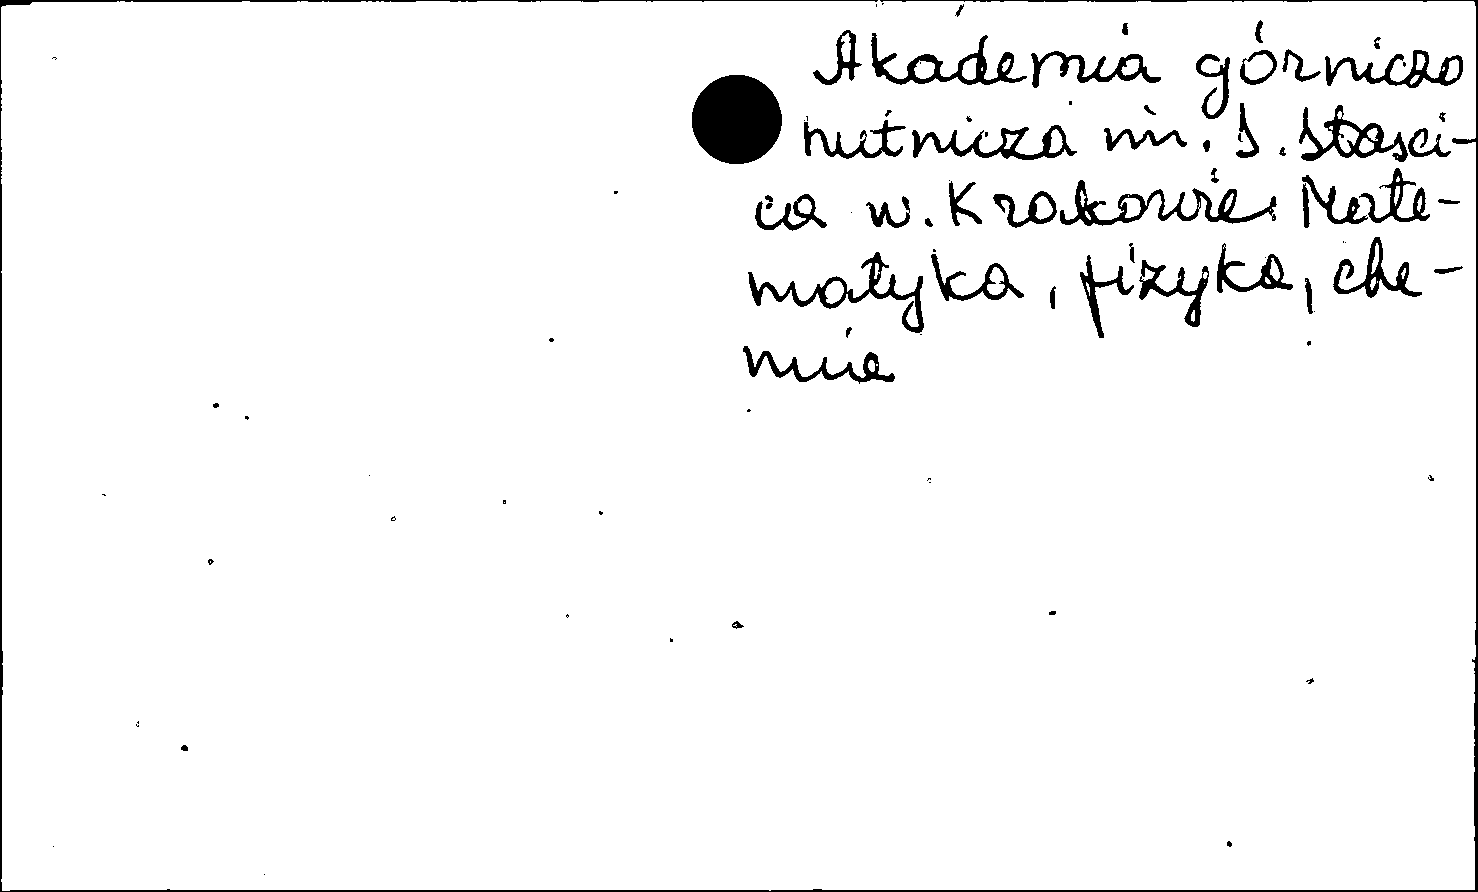 Akademia górniczo
hutnicza im. S. Staszi-
ca w. Krakowie. Mate-
matyka, fizyka, che-
mia